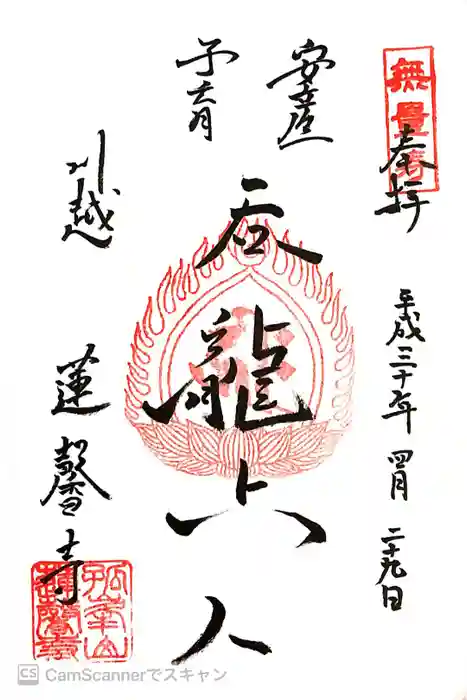 無量壽
奉拝
平成三十年 四月 二十九日
安産
子育
呑龍上人
川越
蓮馨寺
孤峯山
蓮馨寺
CS CamScannerでスキャン